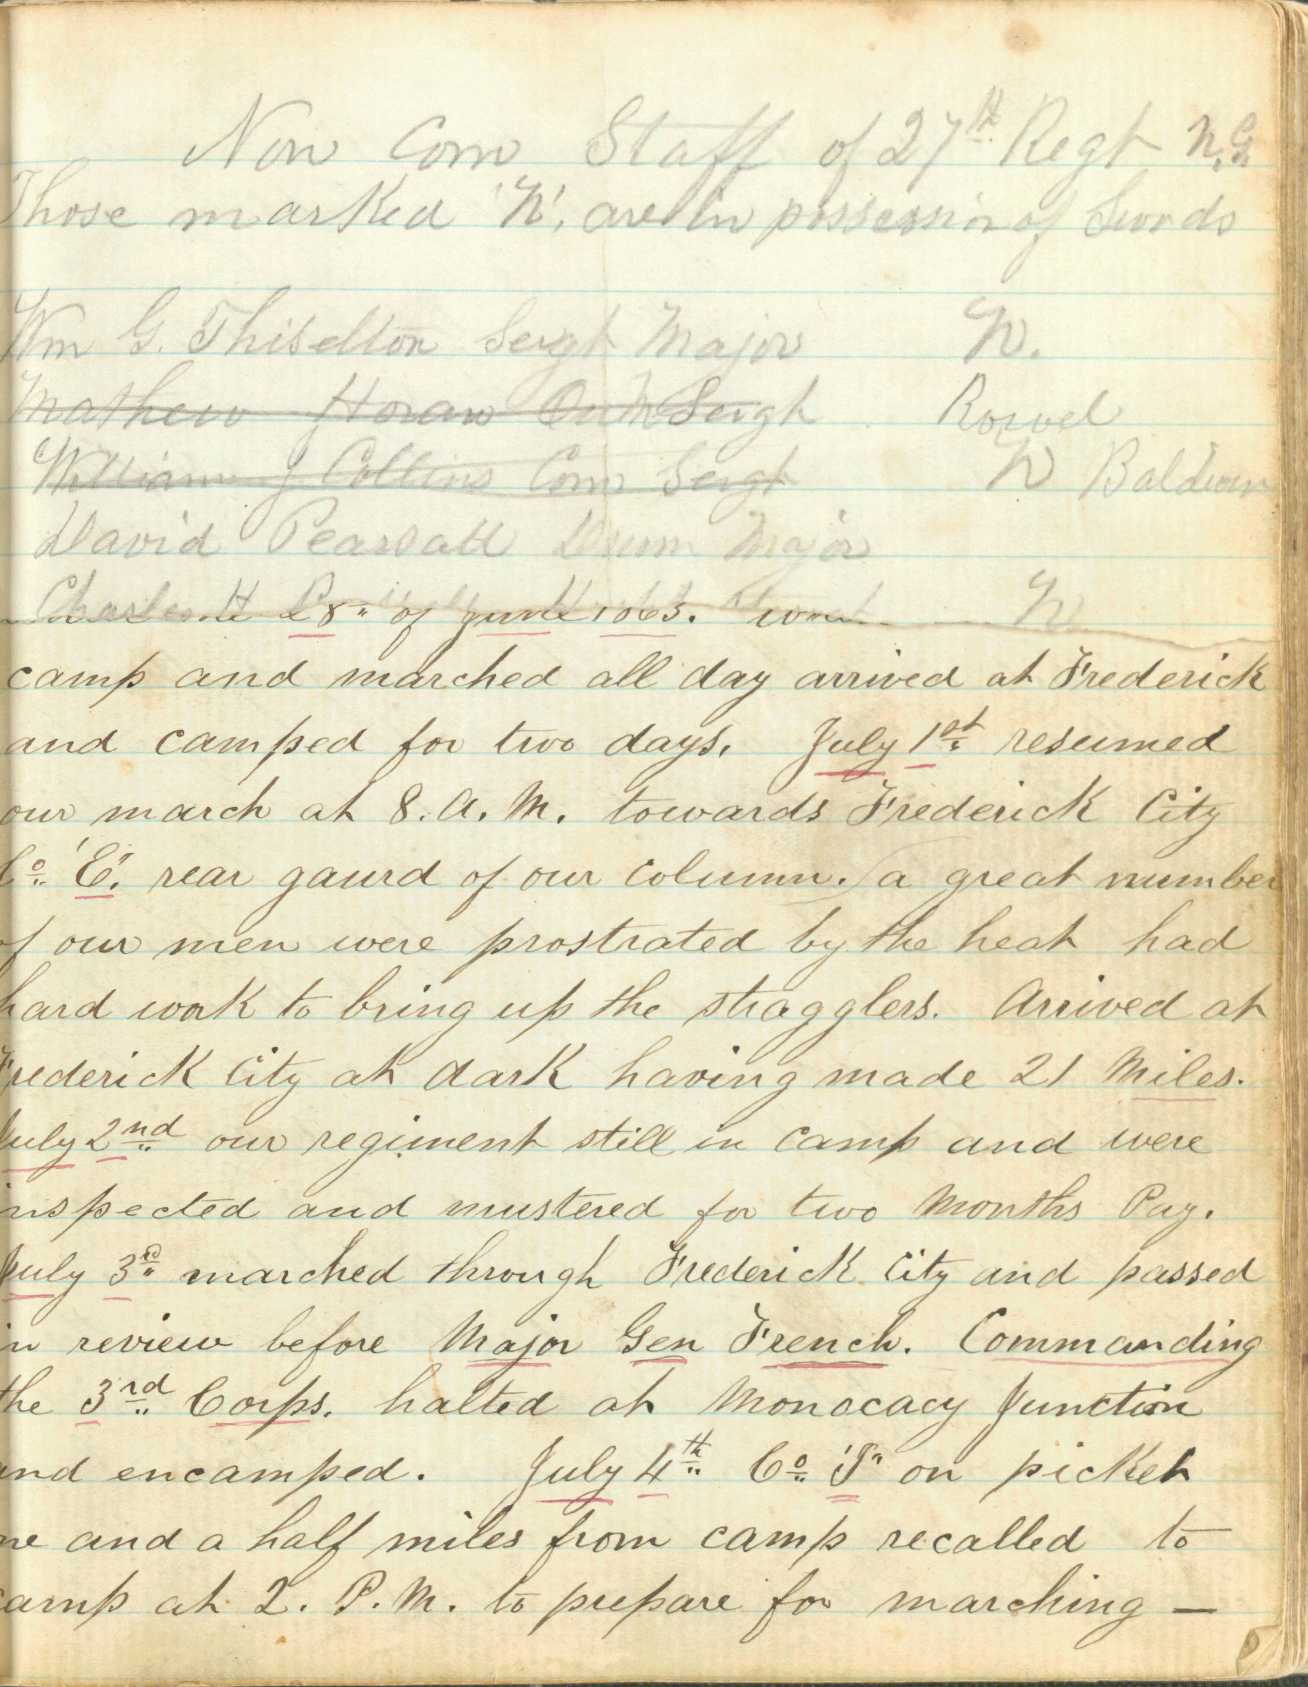 Non Com Staff of 27th Regt N.G.
Those marked 'N', are in possession of Swords
Wm G. Thiselton Sergt Major N.
Mathew Horan Sergt
William J Collins Com Sergt N Baldwin
David Pearsall Drum Major
Charles H N
28" of June 1863.
camp and marched all day arrived at Frederick
and camped for two days. July 1st resumed
our march at 8. A. M. towards Frederick City
Co 'E'. rear gaurd of our column. a great number
of our men were prostrated by the heat had
hard work to bring up the stragglers. Arrived at
Frederick City at dark having made 21 Miles.
July 2nd our regiment still in camp and were
inspected and mustered for two Months Pay.
July 3rd marched through Frederick City and passed
in review before Major Gen French. Commanding
the 3rd Corps. halted at Monocacy Junction
and encamped. July 4th Co on picket
ne and a half miles from camp recalled to
camp at 2. P. M. to prepare for marching —